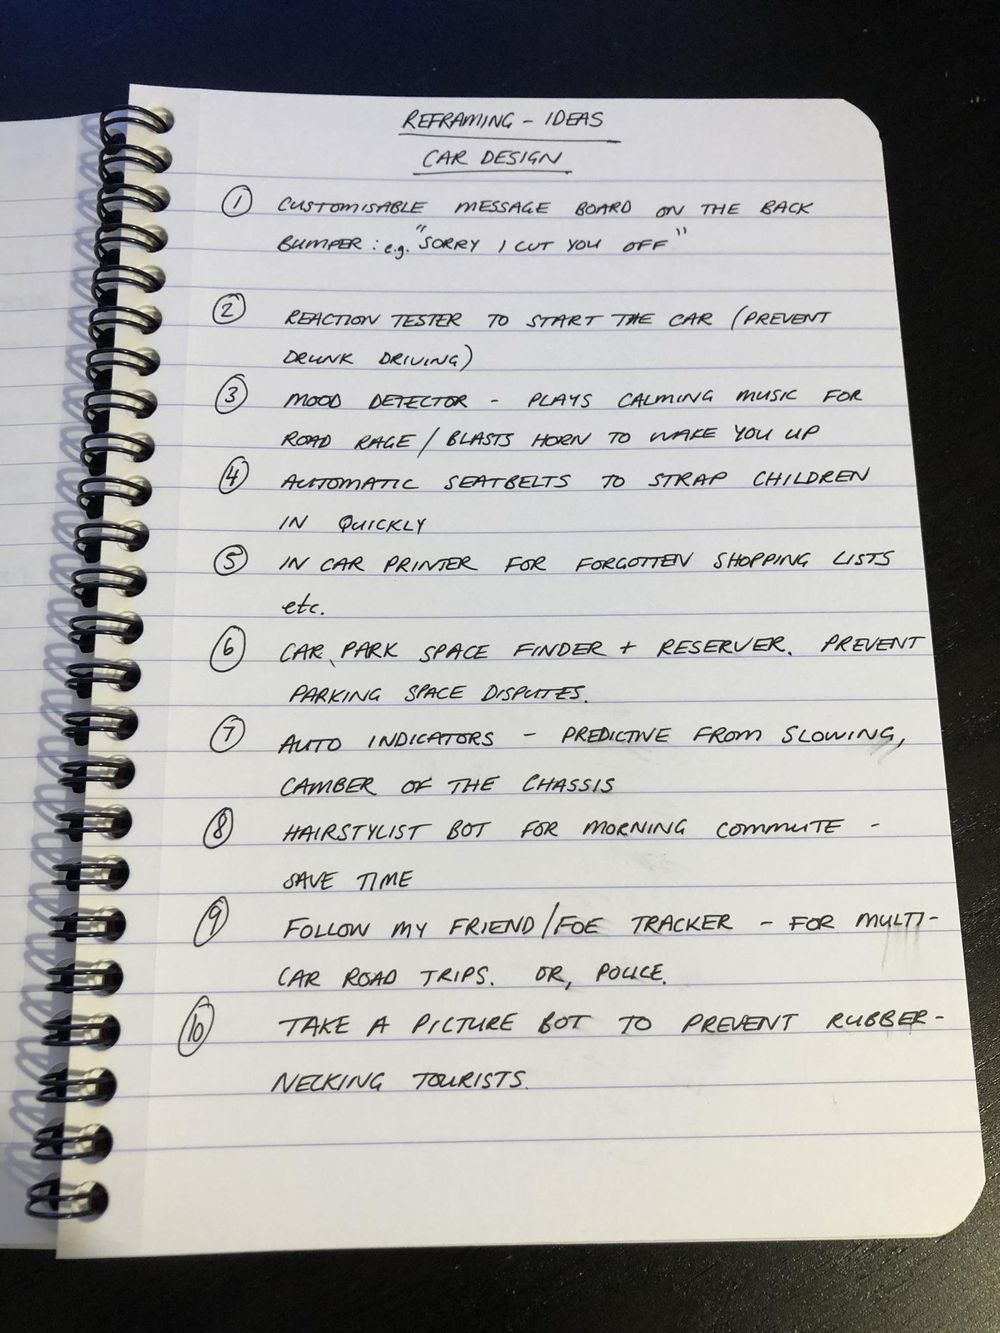 REFRAMING - IDEAS
CAR DESIGN
① CUSTOMISABLE MESSAGE BOARD ON THE BACK
BUMPER: e.g. "SORRY I CUT YOU OFF"
② REACTION TESTER TO START THE CAR (PREVENT
DRUNK DRIVING)
③ MOOD DETECTOR - PLAYS CALMING MUSIC FOR
ROAD RAGE / BLASTS HORN TO WAKE YOU UP
④ AUTOMATIC SEATBELTS TO STRAP CHILDREN
IN QUICKLY
⑤ IN CAR PRINTER FOR FORGOTTEN SHOPPING LISTS
etc.
⑥ CAR PARK SPACE FINDER + RESERVER. PREVENT
PARKING SPACE DISPUTES.
⑦ AUTO INDICATORS - PREDICTIVE FROM SLOWING,
CAMBER OF THE CHASSIS
⑧ HAIRSTYLIST BOT FOR MORNING COMMUTE -
SAVE TIME
⑨ FOLLOW MY FRIEND/FOE TRACKER - FOR MULTI-
CAR ROAD TRIPS. OR, POLICE.
⑩ TAKE A PICTURE BOT TO PREVENT RUBBER-
NECKING TOURISTS.